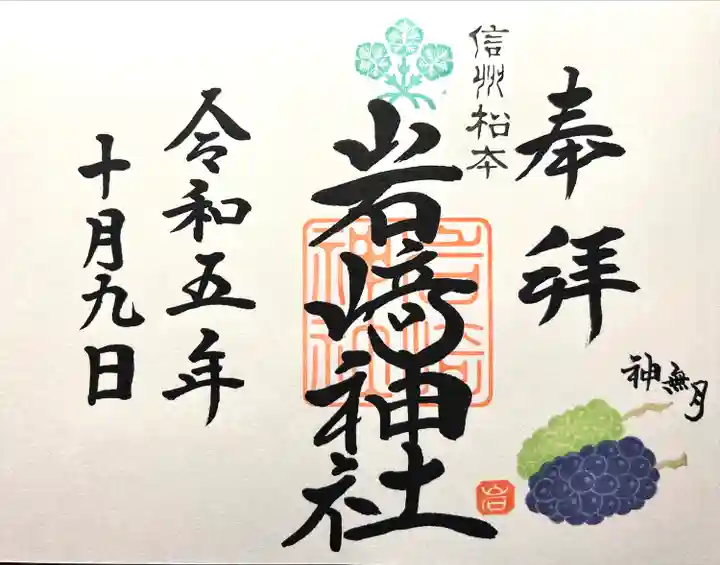 奉拝
信州松本
岩﨑神社
岩崎神社
岩
神無月
令和五年
十月九日